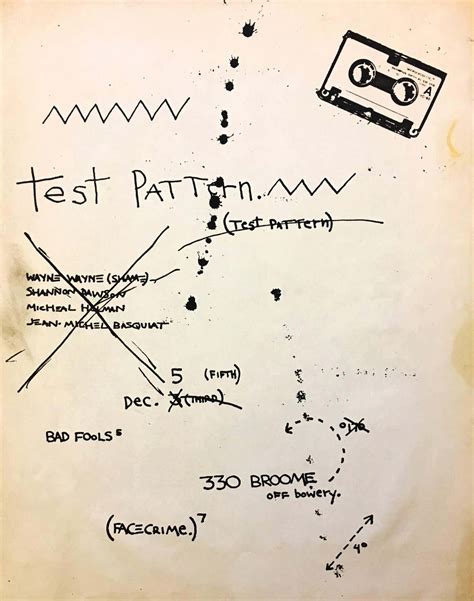 A
Test PATTern.
(Test PATTern)
WAYNE WAYNE (SHAME)
SHANNON DAWSON
MICHEAL HOLMAN
JEAN-MICHEL BASQUIAT
5 (FIFTH)
DEC. 3 (THIRD)
BAD FOOLS 5
330 BROOME
OFF bowery.
(FACECRIME.) 7
4°